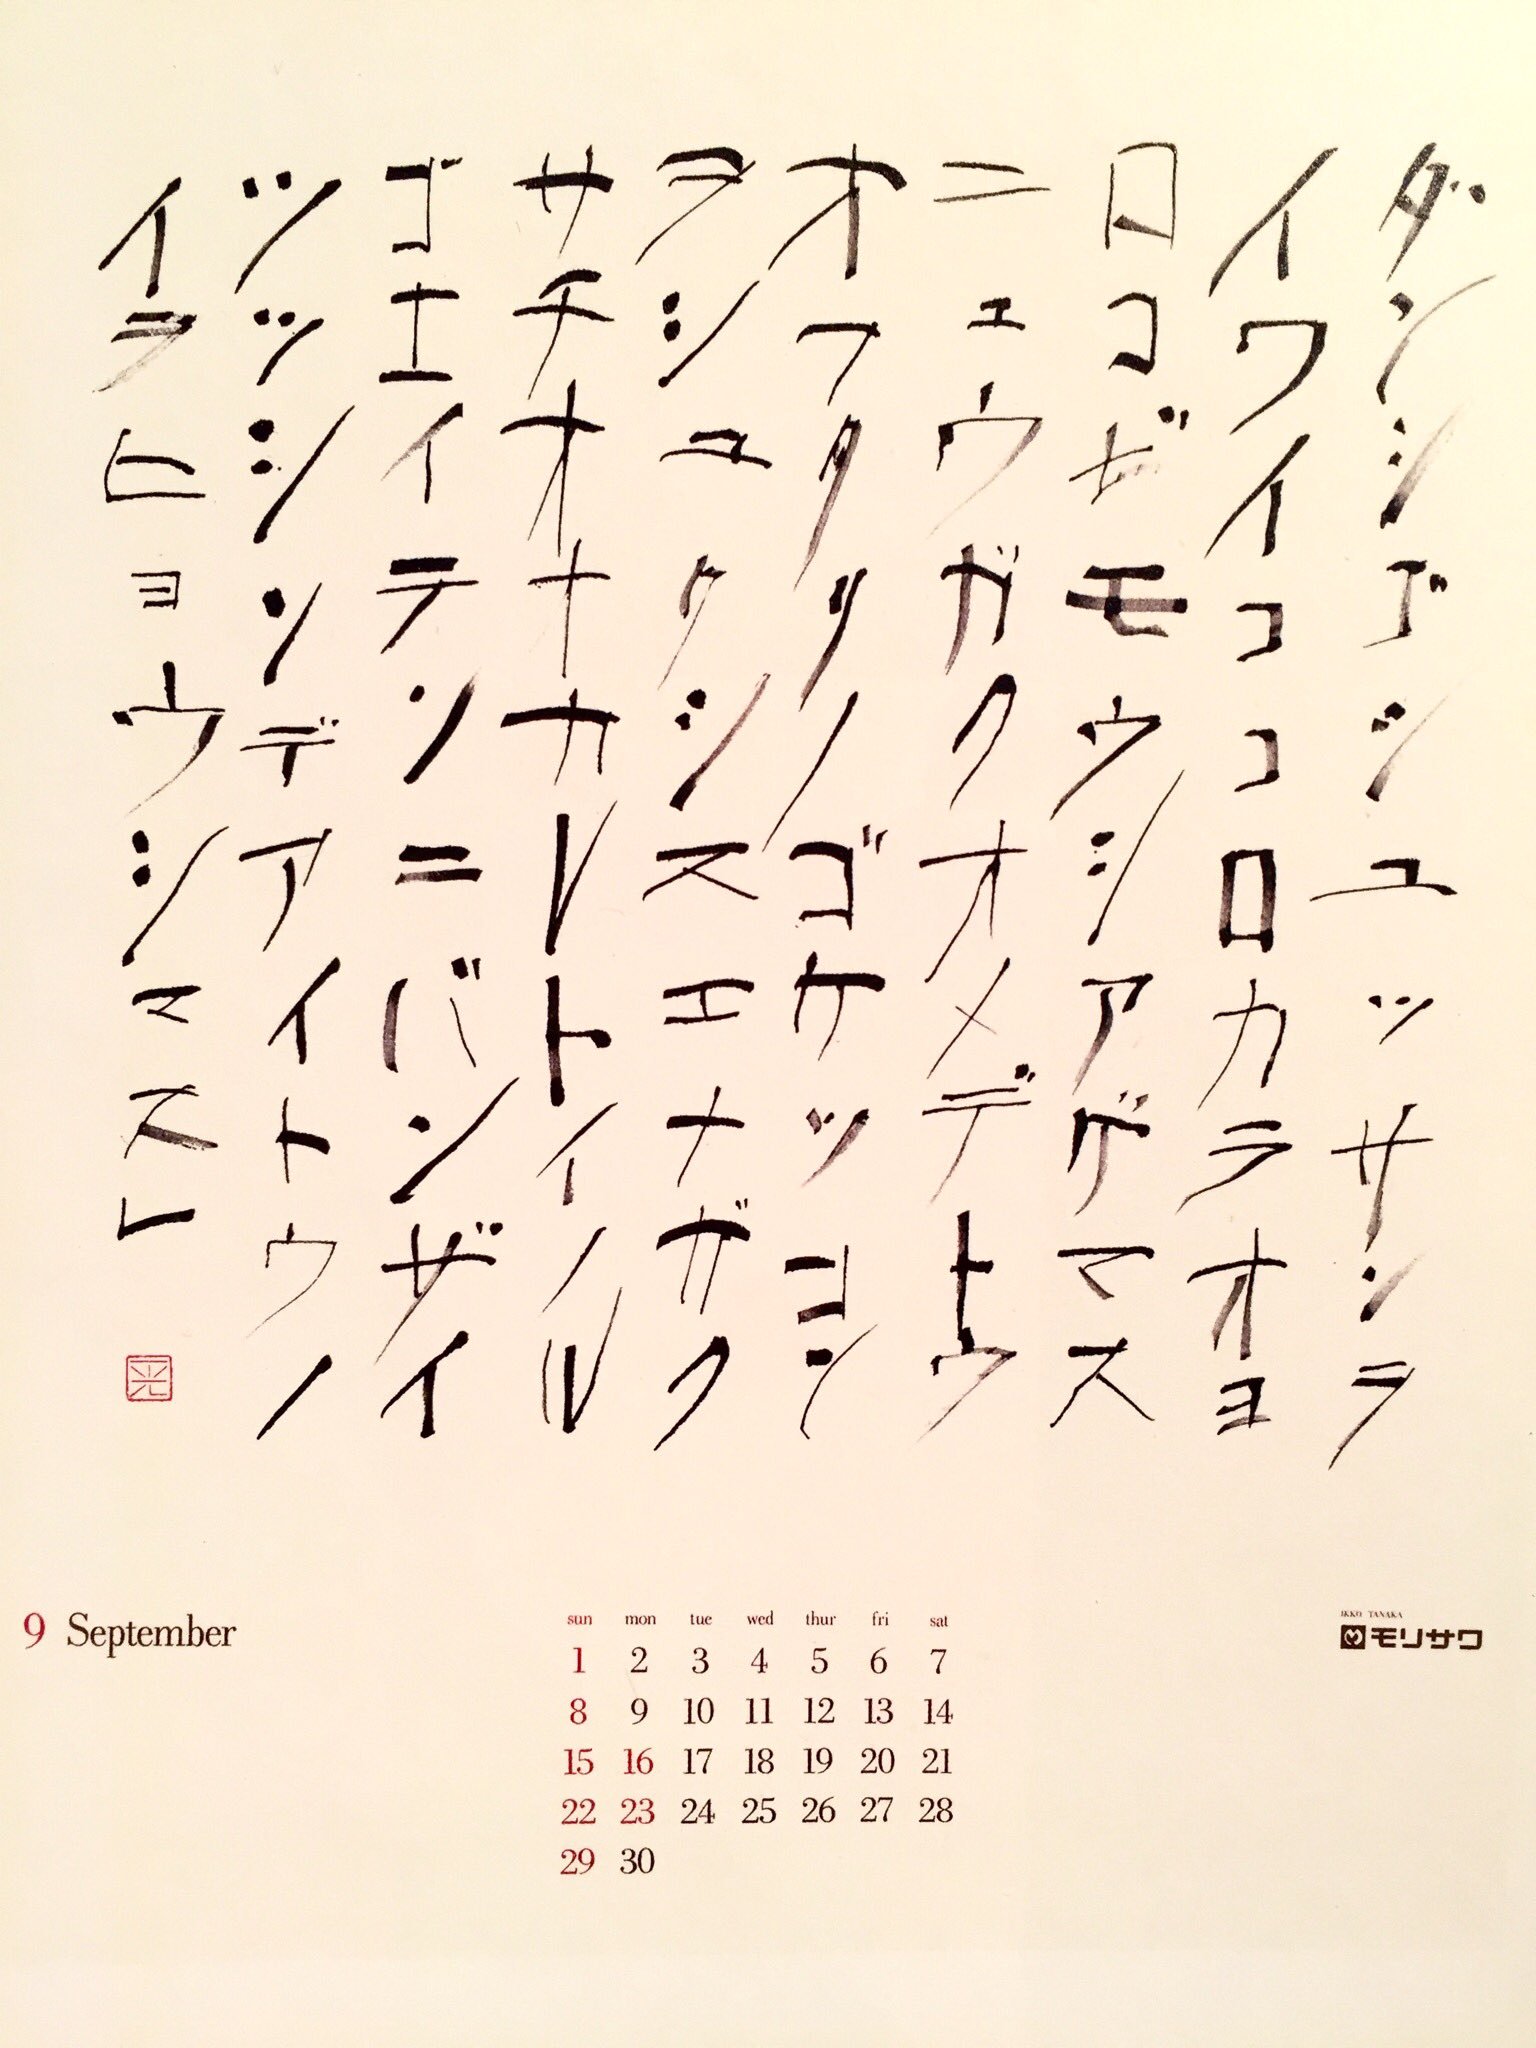 ダンシゴシュッサンヲ
イワイココロカラオヨ
ロコビモウシアゲマス
ニュウガクオメデトウ
オフタリノゴケッコン
ヲシュクシスエナガク
サチオナカレトイノル
ゴエイテンニバンザイ
ツツシンデアイトウノ
イヲヒョウシマスレ
光
9 September
sun mon tue wed thur fri sat
1 2 3 4 5 6 7
8 9 10 11 12 13 14
15 16 17 18 19 20 21
22 23 24 25 26 27 28
29 30
IKKO TANAKA
モリサワ